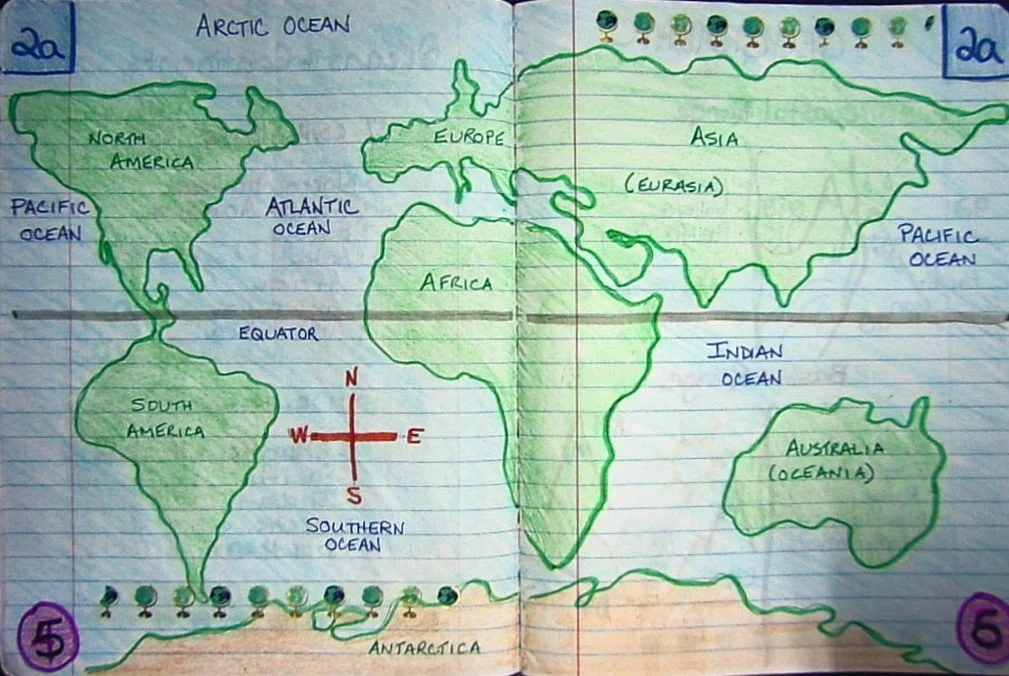 2a
ARCTIC OCEAN
2a
NORTH
AMERICA
EUROPE
ASIA
(EURASIA)
PACIFIC
OCEAN
ATLANTIC
OCEAN
PACIFIC
OCEAN
AFRICA
EQUATOR
INDIAN
OCEAN
SOUTH
AMERICA
N
W E
S
AUSTRALIA
(OCEANIA)
SOUTHERN
OCEAN
ANTARCTICA
5
6